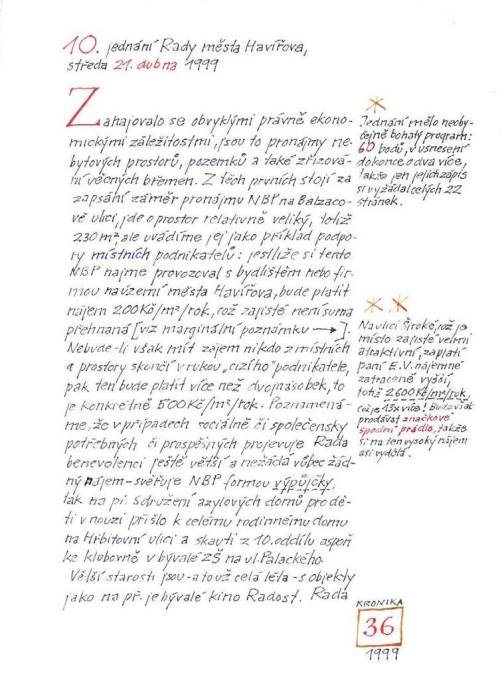 10. jednání Rady města Havířova,
středa 21. dubna 1999
Zahajovalo se obvyklými právně ekono-
mickými záležitostmi, jsou to pronájmy ne-
bytových prostorů, pozemků a také zřizová-
ní věcných břemen. Z těch prvních stojí za
zapsání záměr pronájmu NBP na Balzaco-
vě ulici, jde o prostor relativně veliký, totiž
230 m², ale uvádíme jej jako příklad podpo-
ry místních podnikatelů: jestliže si tento
NBP najme provozoval s bydlištěm nebo fir-
mou na území města Havířova, bude platit
nájem 200 Kč/m²/rok, což zajisté není suma
přehnaná [viz marginální poznámku →].
Nebude-li však mít zájem nikdo z místních
a prostory skončí v rukou „cizího" podnikatele,
pak ten bude platit více než dvojnásobek, to
je konkrétně 500 Kč/m²/rok. Poznamená-
me, že v případech sociálně či společensky
potřebných či prospěšných projevuje Rada
benevolenci ještě větší a nežádá vůbec žád-
ný nájem - svěřuje NBP formou výpůjčky,
tak na př. Sdružení azylových domů pro dě-
ti v nouzi přišlo k celému rodinnému domu
na Hřbitovní ulici a skauti z 10. oddílu aspoň
ke klubovně v bývalé ZŠ na ul. Palackého.
Větší starosti jsou - a to už celá léta - s objekty
jako na př. je bývalé kino Radost. Rada
Jednání mělo neoby-
čejně bohatý program:
60 bodů, v usnesení
dokonce o dva více,
takže jen jejich zápis
si vyžádal celých 22
stránek.
Na ulici Široké, což je
místo zajisté velmi
atraktivní, zaplatí
paní E.V. nájemné
zatraceně vyšší,
totiž 2600 Kč/m²/rok,
což je 13x více! Bude však
prodávat značkové
spodní prádlo, takže
si na ten vysoký nájem
asi vydělá.
KRONIKA
36
1999